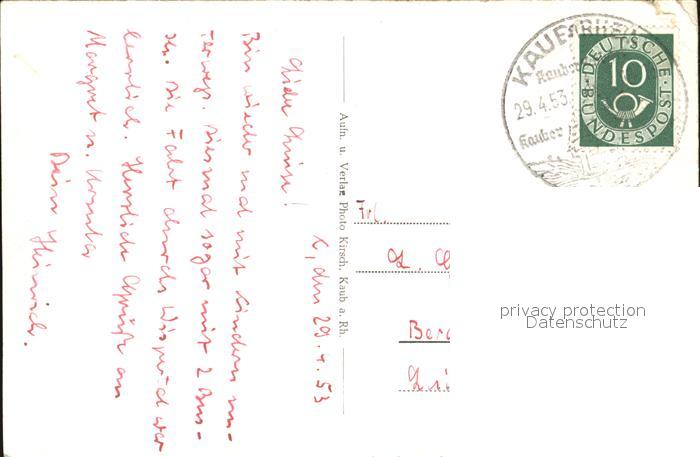 K, den 29.4.53
Liebe Luise!
Bin wieder mal mit Kindern un-
terwegs. Diesmal sogar mit 2 Bus-
sen. Die Fahrt durchs Wispertal war
herrlich. Herzliche Grüße an
Margret u. Ursula
Dein Heinrich.
Aufn. u. Verlag Photo Kirsch, Kaub a. Rh.
KAUB RHEIN
Kauber
29.4.53
Kauber
DEUTSCHE BUNDESPOST
10
Frl.
L.
privacy protection
Datenschutz